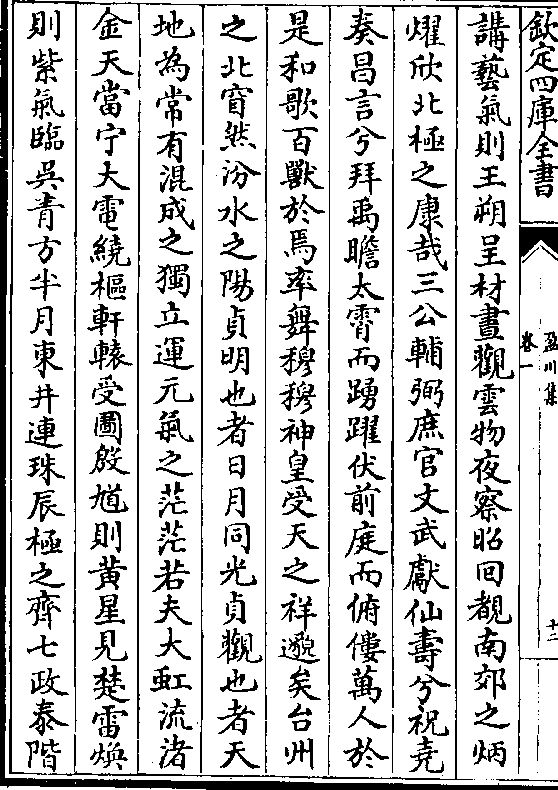 欽定四庫全書
盈川集
卷一
十二
講藝氣則王朔呈材晝觀雲物夜察昭回覩南郊之炳
燿欣北極之康哉三公輔弼庶官文武獻仙壽兮祝堯
奏昌言兮拜禹瞻太霄而踴躍伏前庭而俯僂萬人於
是和歌百獸於焉率舞穆穆神皇受天之祥邈矣台州
之北窅然汾水之陽貞明也者日月同光貞觀也者天
地為常有混成之獨立運元氣之茫茫若夫大虹流渚
金天當宁大電繞樞軒轅受圖殷馗則黄星見楚雷煥
則紫氣臨吳青方半月東井連珠辰極之齊七政泰階